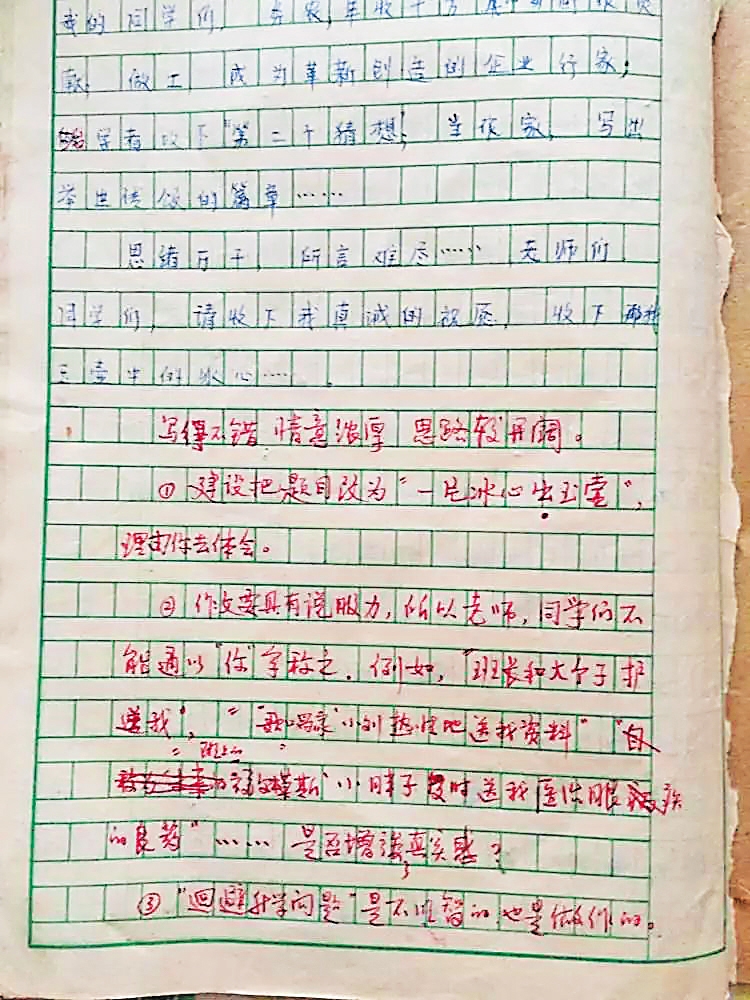 我的同学们，务农，年收十万
款；做工，成为革新创造的企业行家；
学者，攻下“第二个猜想；当作家，写出
的篇章……
思绪万千，所言难尽……老师们，
同学们，请收下我真诚的祝愿，收下那我
玉壶中的冰心……。
写得不错，情意浓厚，思路较开阔。
①建设把题目改为“一片冰心出玉壶”，
理由你去体会。
②作文要具有说服力，所以老师，同学们不
能通以“你”字称之。例如，“班长和大个子护
送我”，“小刘热情地送我资料”“
班上的
小胖子及时送我医治眼疾
的良药”……是否增强真实感？
③“回避升学问题”是不明智的，也是做作的。